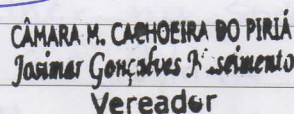 CÂMARA M. CACHOEIRA DO PIRIÁ
Josimar Gonçalves Nascimento
Vereador